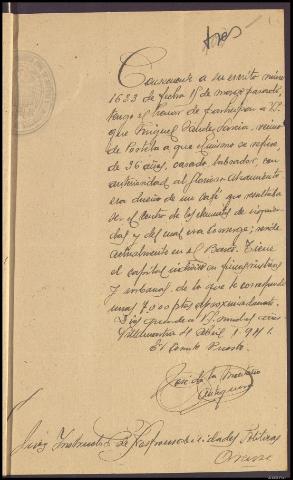 tres
Consecuente a su escrito núm.
1633 de fecha 11 de marzo pasado,
tengo el honor de participar a V.S.
que Miguel
de Portela a que el mismo se refiere,
de 36 años, casado, labrador, con
anterioridad al Glorioso Alzamiento
era dueño de un café que resultaba
ser el centro de los elementos de izquier-
das y del cual era conserje; reside
actualmente en el Barco. Tiene
el capital invertido en fincas rústicas
y urbanas, de la que le corresponde
unas 7.000 ptas aproximadamente.
Dios guarde a V.S. muchos años
Villamartín 4 Abril 1.941.
El Comte Puesto.
José de la
Juez Instructor de Responsabilidades Políticas
Orense